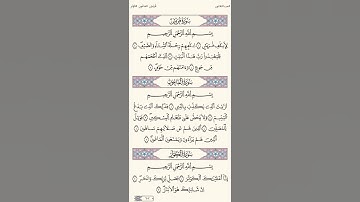 سورة قريش
بسم الله الرحمن الرحيم
لإيلاف قريش ۝ إيلافهم رحلة الشتاء والصيف ۝
فليعبدوا رب هذا البيت ۝ الذي أطعمهم
من جوع ۝ وآمنهم من خوف ۝
سورة الماعون
بسم الله الرحمن الرحيم
أرأيت الذي يكذب بالدين ۝ فذلك الذي يدع
اليتيم ۝ ولا يحض على طعام المسكين ۝ فويل
للمصلين ۝ الذين هم عن صلاتهم ساهون ۝
الذين هم يراءون ويمنعون الماعون ۝
سورة الكوثر
بسم الله الرحمن الرحيم
إنا أعطيناك الكوثر ۝ فصل لربك وانحر ۝
إن شانئك هو الأبتر ۝